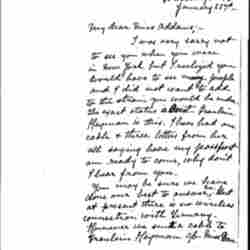 January 25th
My dear Miss Addams:-
I was very sorry not
to see you when you were
in New York but I realized you
would have to see many people
and I did not want to add
to the strain you would be under
the exact status about Fraulein
Heyman is this. I have had one
cable & three letters from her
all saying have my passport
am ready to come, why don't
I hear from you.
You may be sure we have
done our best to answer but
at present there is no wireless
connection with Germany.
However we sent a cable to
Fraulein Heyman, c/o